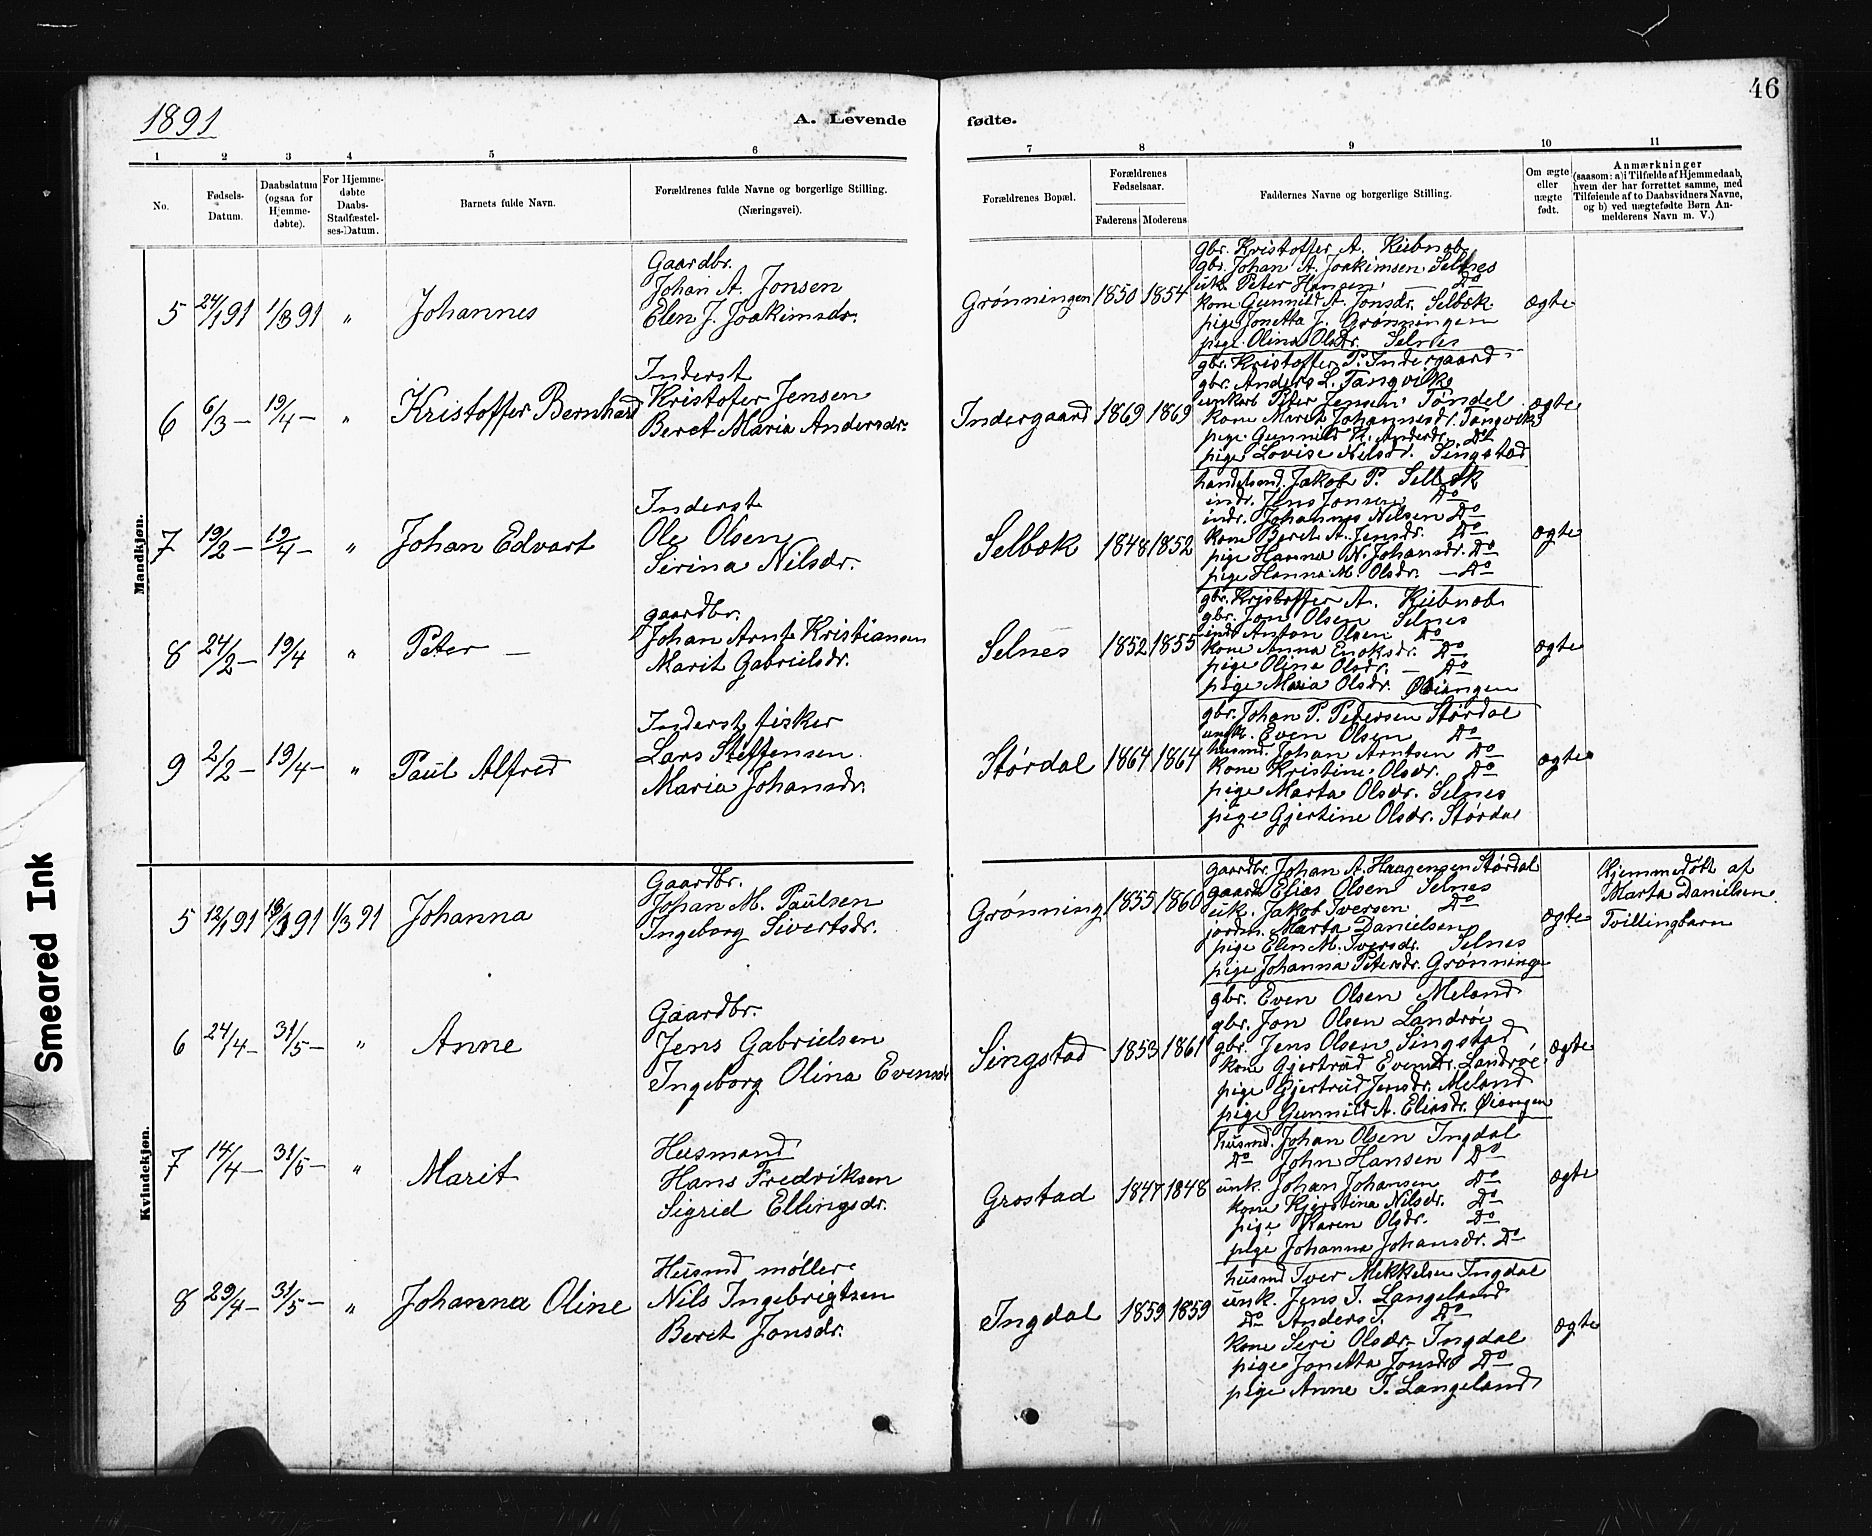 46
1891
A. Levende fødte.
1 2 3 4 5 6 7 8 9 10 11
No.
Fødsels-Datum.
Daabsdatum (ogsaa for Hjemme-døbte).
For Hjemme-døbte Daabs-Stadfæstel-ses-Datum.
Barnets fulde Navn.
Forældrenes fulde Navne og borgerlige Stilling.
(Næringsvei).
Forældrenes Bopæl.
Forældrenes Fødselsaar.
Faderens Moderens
Faddernes Navne og borgerlige Stilling.
Om ægte eller uægte født.
Anmærkninger
(saasom: a) i Tilfælde af Hjemmedaab,
hvem der har forrettet samme, med
Tilføiende af to Daabsvidners Navne,
og b) ved uægtefødte Børn An-
melderens Navn m. V.)
Mandkjøn.
5 24/1 91 1/3 91 " Johannes
Gaardbr.
Johan A. Jonsen
Elen J. Joakimsdr.
Grønningen 1850 1854
gbr. Kristoffer A. Kubnab
gbr. Johan A. Joakimsen Selnes
ük. Peter Hansen — Do
kone Gunnild A. Jonsdr. Selbæk
pige Jonetta J. Grønningen
pige Olina Olsdr. Selnes
ægte
6 6/3 — 19/4 — " Kristoffer Bernhard
Inderst
Kristofer Jensen
Beret Maria Andersdr.
Indergaard 1869 1869
gbr. Kristoffer P. Indergaard
gbr. Anders L. Tangvik
ünkarb Peter Jensen Tøndel
kone Marit Johannesd. Tangvik
pige Gunnild K. Andersdr. Do
pige Lovise Nilsdr. Singstad
ægte
7 19/2 — 19/4 — " Johan Edvart
Inderst
Ole Olsen
Sirina Nilsdr.
Selbæk 1848 1852
handelsmd. Jakob P. Selbæk
indr. Jens Jonsen Do
indr. Johannes Nilsen Do
kone Beret A. Jensdr. Do
pige Hanna N. Johansdr. Do
pige Hanna M. Olsdr. — Do
ægte
8 24/2 — 19/4 " Peter —
gaardbr.
Johan Arnt Kristiansen
Marit Gabrielsdr.
Selnes 1852 1855
gbr. Kristoffer A. Kubnab
gbr. Jon Olsen Selnes
ind. Anton Olsen Do
kone Anna Enoksdr. Do
pige Olina Olsdr. — Do
pige Maria Olsdr. Øiangen
ægte
9 2/2 — 19/4 — " Paul Alfred
Inderst, fisker
Lars Steffensen
Maria Johansdr.
Størdal 1864 1864
gbr. Johan P. Pedersen Størdal
ungk. Even Olsen Do
husmd. Johan Arntsen Do
kone Kristine Olsdr. Do
pige Marta Olsdr. Selnes
pige Gjertine Olsdr. Størdal
ægte
Kvindekjøn.
5 12/1 91 18/1 91 1/3 91 Johanna
Gaardbr.
Johan M. Paulsen
Ingeborg Sivertsdr.
Grønning 1855 1860
gaardbr. Johan A. Haagensen Størdal
gaardb Elias Olsen Selnes
ük. Jakob Iversen Do
jordm. Marta Danielsen
pige Elen M. Iversdr. Selnes
pige Johanna Petersdr. Grønninge
ægte
Hjemmedøbt af
Marta Danielsen.
Tvillingbarn
6 24/4 — 31/5 — " Anne
Gaardbr.
Jens Gabrielsen
Ingeborg Olina Evensdr
Singstad 1853 1861
gbr. Even Olsen Meland
gbr. Jon Olsen Landrøe
gbr. Jens Olsen Singstad
kone Gjertrud Evensdr. Landrøe
pige Gjertrud Jensdr. Meland
pige Gunnild A. Eliasdr. Øiangen
ægte
7 14/4 — 31/5 — " Marit
Husmand
Hans Fredriksen
Sigrid Ellingsdr.
Grostad 1847 1848
husmd. Johan Olsen Ingdal
Do John Hansen Do
ünk. Johan Johansen Do
kone Kjerstina Nilsdr. Do
pige Karen Olsdr. Do
pige Johanna Johansdr. Do
ægte
8 29/4 — 31/5 — " Johanna Oline
Husmd møller
Nils Ingebrigtsen
Beret Jonsdr.
Ingdal 1859 1859
husmd Iver Mikkelsen Ingdal
ünk. Jens J. Langeland
Do Anders J. Do
kone Seri Olsdr. Ingdal
pige Jonetta Jonsdr. Do
pige Anne J. Langeland
ægte
Smeared Ink